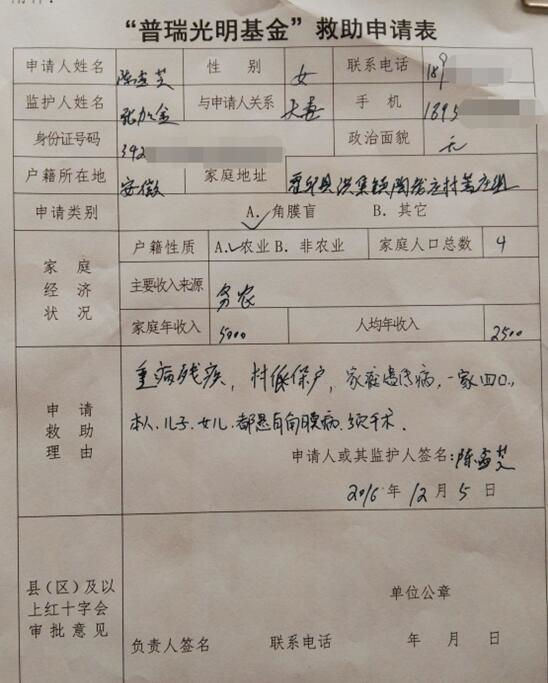 “普瑞光明基金”救助申请表
申请人姓名 陈孟芝 性别 女 联系电话 189
监护人姓名 张加金 与申请人关系 夫妻 手机 1895
身份证号码 342 政治面貌 无
户籍所在地 安徽 家庭地址 霍邱县洪集镇陶老庄村
申请类别 A.√角膜盲 B.其它
家庭经济状况 户籍性质 A.√农业 B.非农业 家庭人口总数 4
主要收入来源 务农
家庭年收入 5000 人均年收入 2500
申请救助理由
重病残疾，村低保户，家庭遗传病，一家四口，
本人、儿子、女儿，都患角膜病、须手术．
申请人或其监护人签名：陈孟芝
2016年12月5日
县（区）及以上红十字会审批意见
单位公章
负责人签名 联系电话 年 月 日